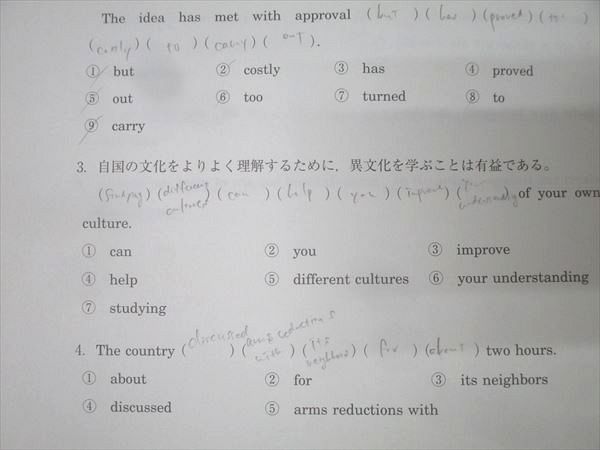 The idea has met with approval (but) (has) (proved) (too)
(costly) (to) (carry) (out).
① but ② costly ③ has ④ proved
⑤ out ⑥ too ⑦ turned ⑧ to
⑨ carry
3. 自国の文化をよりよく理解するために，異文化を学ぶことは有益である。
(studying) (different cultures) (can) (help) (you) (improve) (your understanding) of your own
culture.
① can ② you ③ improve
④ help ⑤ different cultures ⑥ your understanding
⑦ studying
4. The country (discussed) (arms reductions with) (its neighbors) (for) (about) two hours.
① about ② for ③ its neighbors
④ discussed ⑤ arms reductions with